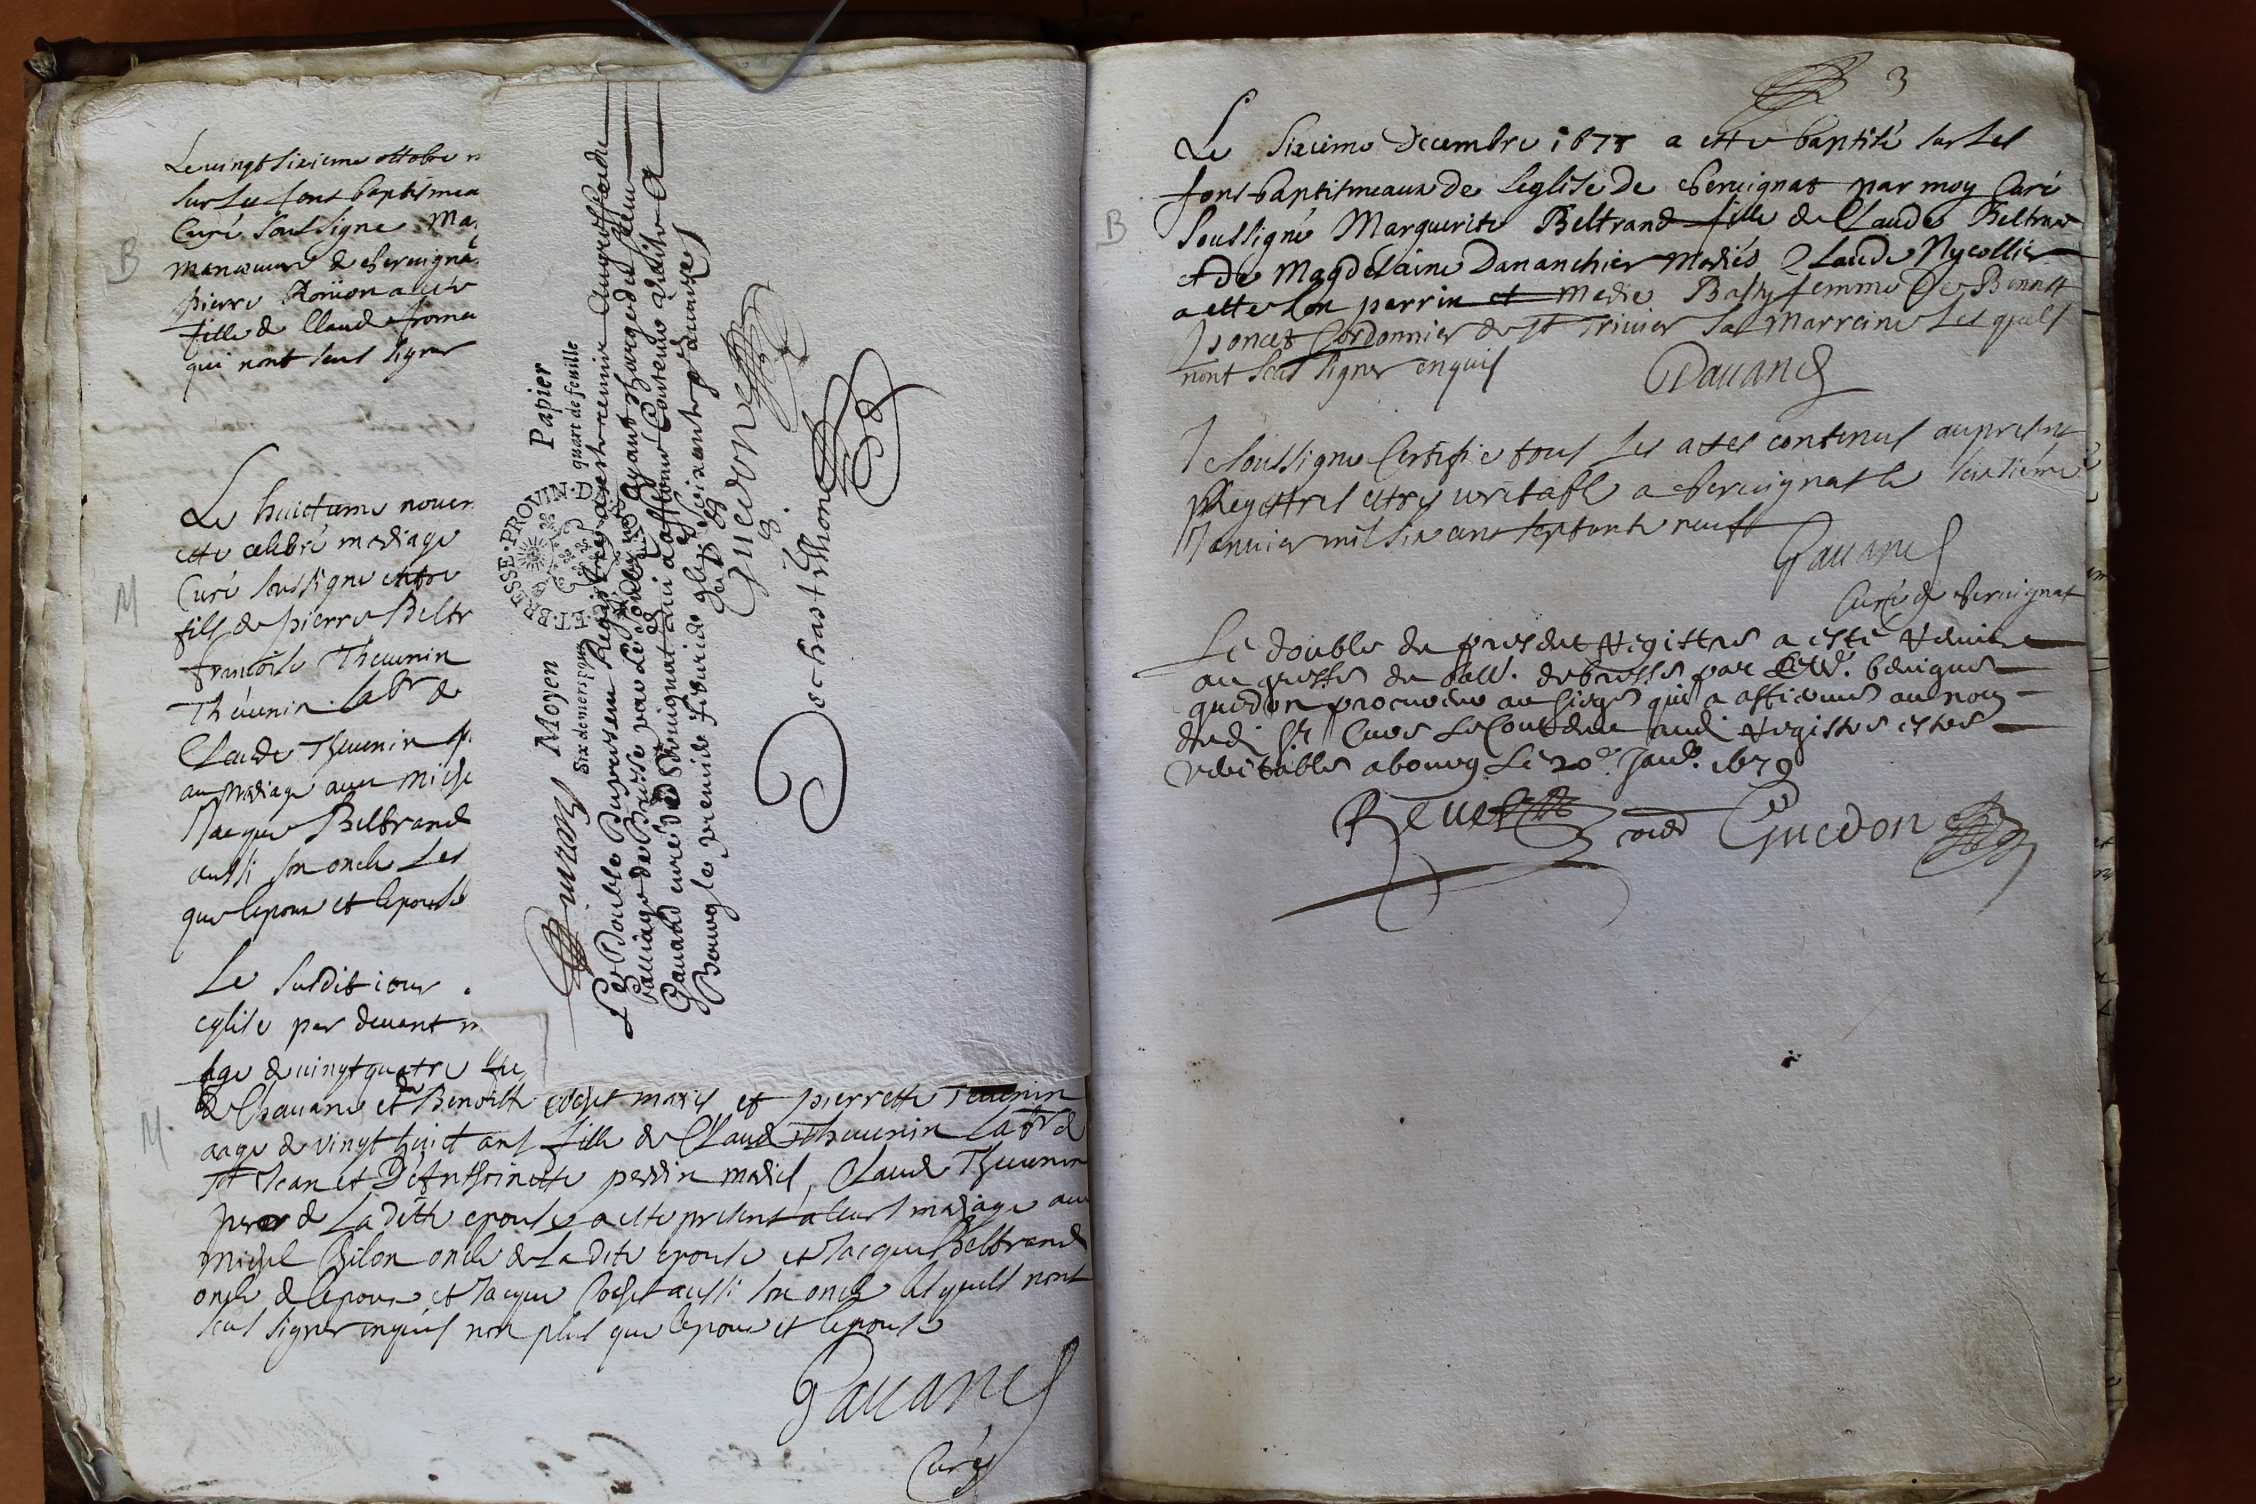 Le vingt sixieme octobre
sur les fons baptismea
Curé soussigne Ma
B
manœuvre de chevigna
pierre
fille de Claude
qui nont sceus signer
Le huictieme novem
ette celebré mariage
Curé soussigne entre
M
fils de pierre Beltr
francoise Thevenin
Thevenin labr de
Claude Thevenin
au mariage avec miche
Jacques Beltrand
aussi son oncle les
que lepoux et lepouse
Le susdit iour
eglise par devant m
age de vingt quatre
de Chavane et Benoiste cochet mariés et pierrette Thevenin
M
aage de vingt huict ans fille de Claude Thevenin labr de
St Jean et De Anthoinette perrin mariés, Claude Thevenin
pere de La ditte epouse a ette present a leurs mariage avec
michel Bilon oncle de La dite epouse et Jacque Beltrand
oncle de lepoux et Jacque Cochet aussi son oncle lesquels nont
sceus signer enquis non plus que lepoux et lepouse
Gavand
Curé
Moyen Papier
Six deniers pour quart de feuille
ET·BRESSE·PROVIN·D
Le Double Du present Registre a esté remis au greffe du
Bailliage de Bresse par le soubsigné ayant charge du sieur
Gavand curé de
Bourg le premier feuvrier gbj soixante
Guedon
Dochastelmont
3
Le Sixieme Decembre 1678 a ette baptisé sur les
fons baptismeaux de Leglise de chevignat par moy Curé
B
soussigné Marguerite Beltrand fille de Claude Beltrand
et de Magdelaine Dananchier mariés Claude Nycollier
a ette son parrin et Marie Bassy femme De Benoist
Poncet Cordonnier de St Trivier sa marreine Les quels
nont sceus signer enquis
Gavand
Je soussigne Certifie tous les actes contenus au present
Registres ettre veritable a chevignat le
Janvier mil six cens septante neuf
Gavand
Curé de chevignat
Le double du present Registre a esté Remis
au greffe du baill. de bresse par Me benigne
guedon procureur au siege qui a affirmé au nom
dudi Sr Curé Le Contenu audi Registre estre
veritable a bourg Le 20e Janv. 1679
Revel Guedon